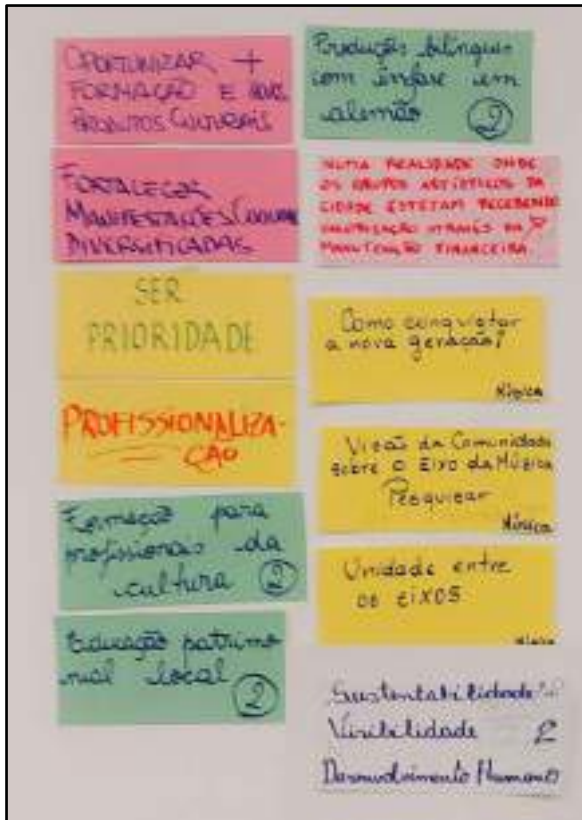 OPORTUNIZAR +
FORMAÇÃO E NOVOS
PRODUTOS CULTURAIS
FORTALECER
MANIFESTAÇÕES CULTURAIS
DIVERSIFICADAS
SER
PRIORIDADE
PROFISSIONALIZA-
ÇÃO
Formação para
profissionais da
cultura 2
Educação patrimo
nial local 2
Produções bilíngues
com ênfase em
alemão 2
NUMA REALIDADE ONDE
OS GRUPOS ARTÍSTICOS DA
CIDADE ESTEJAM RECEBENDO
VALORIZAÇÃO ATRAVÉS DA
MANUTENÇÃO FINANCEIRA
Como conquistar
a nova geração?
Música
Visão da Comunidade
sobre o Eixo da Música
Pesquisar
Música
Unidade entre
os EIXOS
Música
Sustentabilidade
Visibilidade
Desenvolvimento Humano